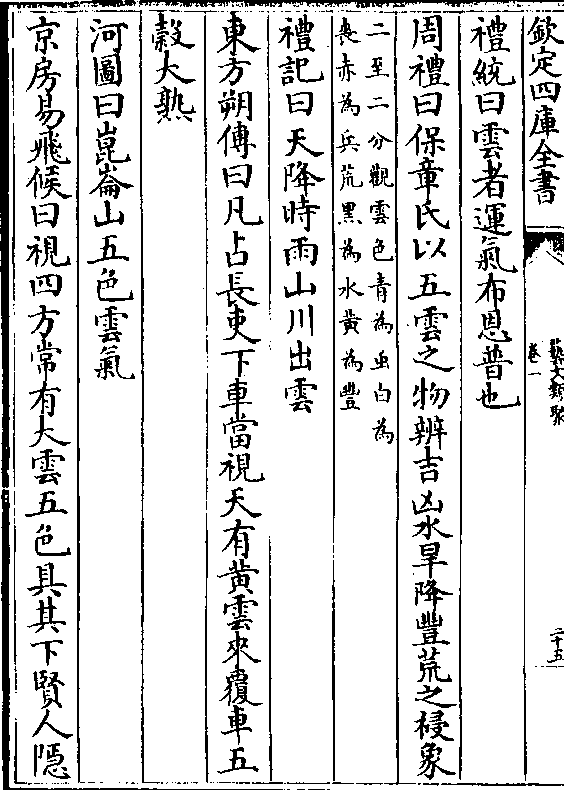 欽定四庫全書
藝文類聚
卷一
二十五
禮統曰雲者運氣布恩普也
周禮曰保章氏以五雲之物辨吉凶水旱降豐荒之祲象
二至二分觀雲色青為虫白為
喪赤為兵荒黑為水黄為豐
禮記曰天降時雨山川出雲
東方朔傳曰凡占長吏下車當視天有黄雲來覆車五
穀大熟
河圖曰崑崙山五色雲氣
京房易飛候曰視四方常有大雲五色具其下賢人隱